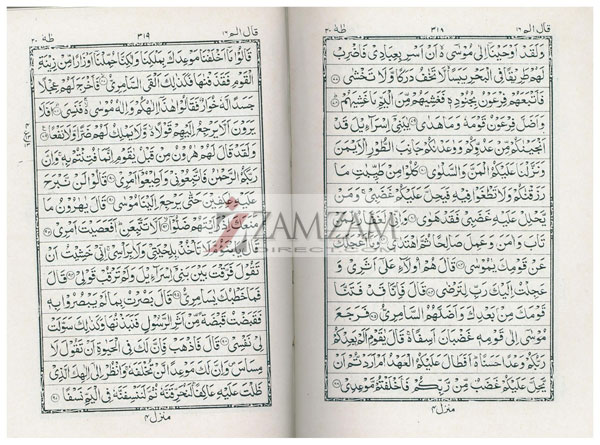 قال الم ١٦
٣١٨
طٰهٰ ٢٠
وَلَقَدْ اَوْحَيْنَآ اِلٰى مُوْسٰٓى ەۙ اَنْ اَسْرِ بِعِبَادِيْ فَاضْرِبْ
لَهُمْ طَرِيْقًا فِي الْبَحْرِ يَبَسًا لَّا تَخٰفُ دَرَكًا وَّلَا تَخْشٰى
فَاَتْبَعَهُمْ فِرْعَوْنُ بِجُنُوْدِهٖ فَغَشِيَهُمْ مِّنَ الْيَمِّ مَا غَشِيَهُمْ
وَاَضَلَّ فِرْعَوْنُ قَوْمَهٗ وَمَا هَدٰى يٰبَنِيْٓ اِسْرَآءِيْلَ قَدْ
اَنْجَيْنٰكُمْ مِّنْ عَدُوِّكُمْ وَوٰعَدْنٰكُمْ جَانِبَ الطُّوْرِ الْاَيْمَنَ
وَنَزَّلْنَا عَلَيْكُمُ الْمَنَّ وَالسَّلْوٰى كُلُوْا مِنْ طَيِّبٰتِ مَا
رَزَقْنٰكُمْ وَلَا تَطْغَوْا فِيْهِ فَيَحِلَّ عَلَيْكُمْ غَضَبِيْ وَمَنْ
يَّحْلِلْ عَلَيْهِ غَضَبِيْ فَقَدْ هَوٰى وَاِنِّيْ لَغَفَّارٌ لِّمَنْ
تَابَ وَاٰمَنَ وَعَمِلَ صَالِحًا ثُمَّ اهْتَدٰى وَمَآ اَعْجَلَكَ
عَنْ قَوْمِكَ يٰمُوْسٰى قَالَ هُمْ اُولَآءِ عَلٰٓى اَثَرِيْ وَ
عَجِلْتُ اِلَيْكَ رَبِّ لِتَرْضٰى قَالَ فَاِنَّا قَدْ فَتَنَّا
قَوْمَكَ مِنْ بَعْدِكَ وَاَضَلَّهُمُ السَّامِرِيُّ فَرَجَعَ
مُوْسٰٓى اِلٰى قَوْمِهٖ غَضْبَانَ اَسِفًا قَالَ يٰقَوْمِ اَلَمْ يَعِدْكُمْ
رَبُّكُمْ وَعْدًا حَسَنًا اَفَطَالَ عَلَيْكُمُ الْعَهْدُ اَمْ اَرَدْتُّمْ اَنْ
يَّحِلَّ عَلَيْكُمْ غَضَبٌ مِّنْ رَّبِّكُمْ فَاَخْلَفْتُمْ مَّوْعِدِيْ
منزل ٤
قال الم ١٦
٣١٩
طٰهٰ ٢٠
قَالُوْا مَآ اَخْلَفْنَا مَوْعِدَكَ بِمَلْكِنَا وَلٰكِنَّا حُمِّلْنَآ اَوْزَارًا مِّنْ زِيْنَةِ
الْقَوْمِ فَقَذَفْنٰهَا فَكَذٰلِكَ اَلْقَى السَّامِرِيُّ فَاَخْرَجَ لَهُمْ عِجْلًا
جَسَدًا لَّهٗ خُوَارٌ فَقَالُوْا هٰذَآ اِلٰهُكُمْ وَاِلٰهُ مُوْسٰى ەۥ فَنَسِيَ اَفَلَا
يَرَوْنَ اَلَّا يَرْجِعُ اِلَيْهِمْ قَوْلًا وَّلَا يَمْلِكُ لَهُمْ ضَرًّا وَّلَا نَفْعًا
وَلَقَدْ قَالَ لَهُمْ هٰرُوْنُ مِنْ قَبْلُ يٰقَوْمِ اِنَّمَا فُتِنْتُمْ بِهٖ وَاِنَّ
رَبَّكُمُ الرَّحْمٰنُ فَاتَّبِعُوْنِيْ وَاَطِيْعُوْٓا اَمْرِيْ قَالُوْا لَنْ نَّبْرَحَ
عَلَيْهِ عٰكِفِيْنَ حَتّٰى يَرْجِعَ اِلَيْنَا مُوْسٰى قَالَ يٰهٰرُوْنُ مَا
مَنَعَكَ اِذْ رَاَيْتَهُمْ ضَلُّوْٓا اَلَّا تَتَّبِعَنِ اَفَعَصَيْتَ اَمْرِيْ
قَالَ يَبْنَؤُمَّ لَا تَاْخُذْ بِلِحْيَتِيْ وَلَا بِرَاْسِيْ اِنِّيْ خَشِيْتُ اَنْ
تَقُوْلَ فَرَّقْتَ بَيْنَ بَنِيْٓ اِسْرَآءِيْلَ وَلَمْ تَرْقُبْ قَوْلِيْ قَالَ
فَمَا خَطْبُكَ يٰسَامِرِيُّ قَالَ بَصُرْتُ بِمَا لَمْ يَبْصُرُوْا بِهٖ
فَقَبَضْتُ قَبْضَةً مِّنْ اَثَرِ الرَّسُوْلِ فَنَبَذْتُهَا وَكَذٰلِكَ سَوَّلَتْ
لِيْ نَفْسِيْ قَالَ فَاذْهَبْ فَاِنَّ لَكَ فِي الْحَيٰوةِ اَنْ تَقُوْلَ لَا
مِسَاسَ وَاِنَّ لَكَ مَوْعِدًا لَّنْ تُخْلَفَهٗ وَانْظُرْ اِلٰٓى اِلٰهِكَ الَّذِيْ
ظَلْتَ عَلَيْهِ عَاكِفًا لَنُحَرِّقَنَّهٗ ثُمَّ لَنَنْسِفَنَّهٗ فِي الْيَمِّ نَسْفًا
منزل ٤
ZAMZAM
DIRECT